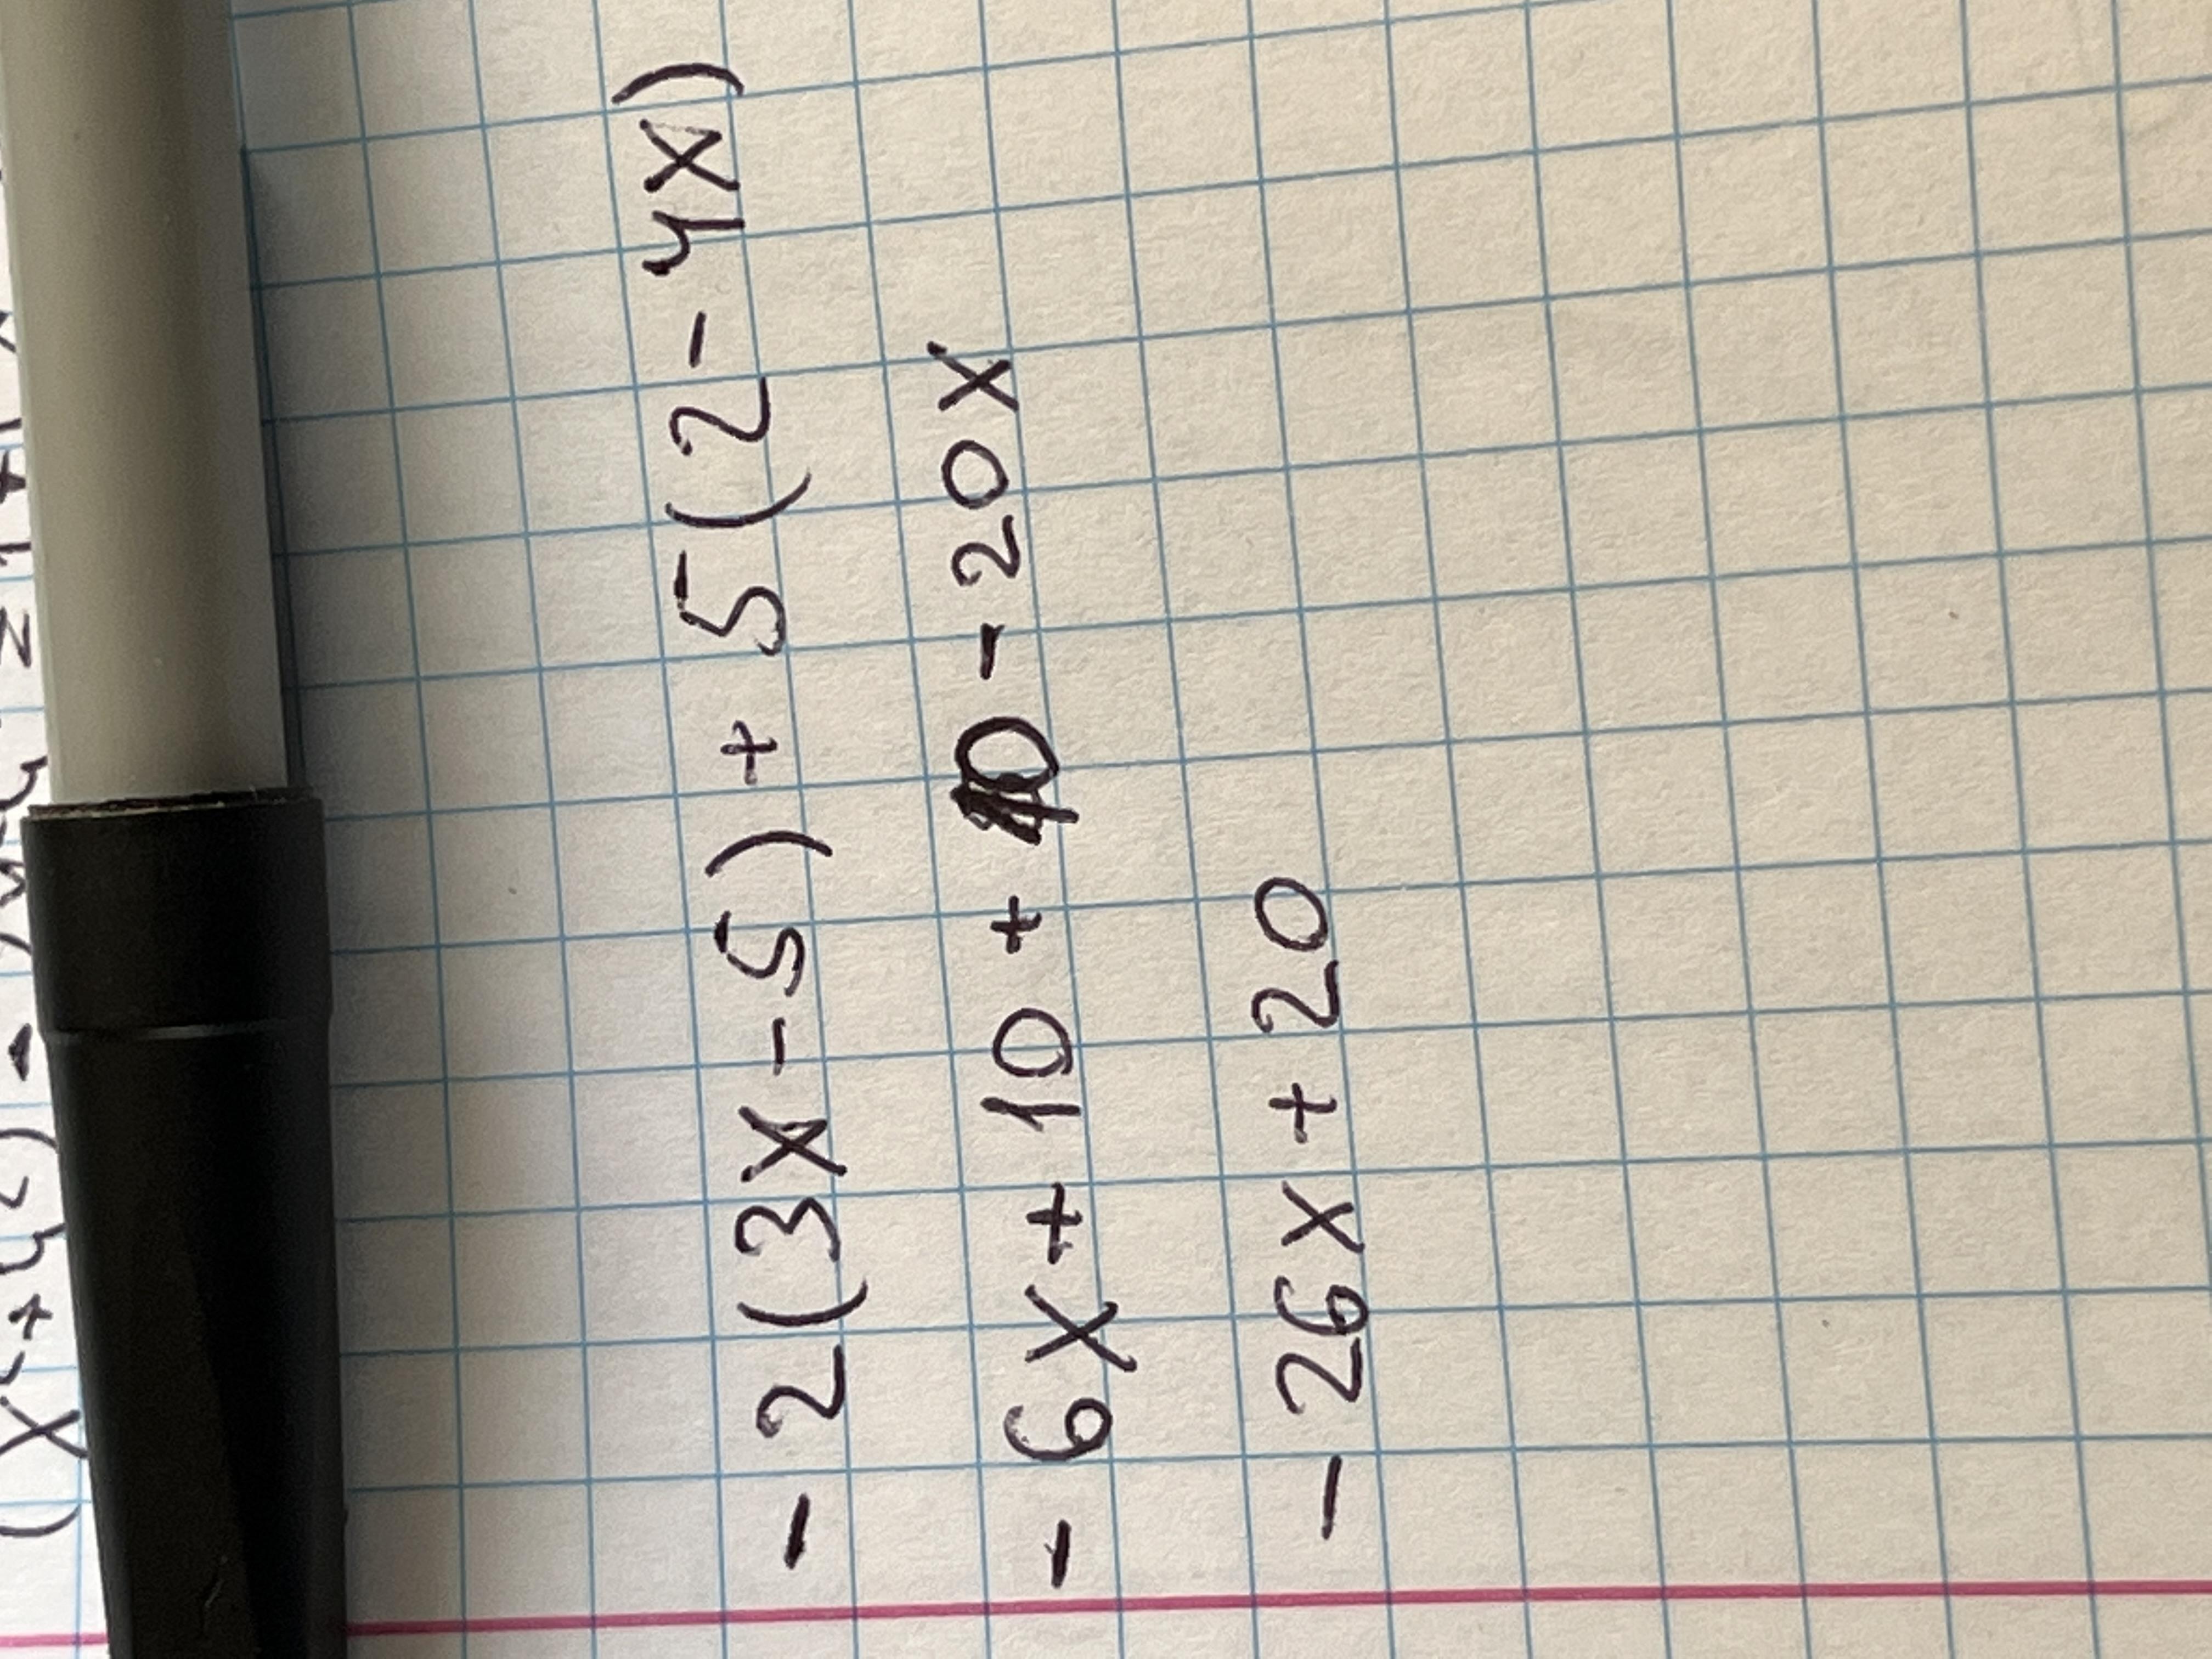 - 2(3x - 5) + 5(2 - 4x)
- 6x + 10 + 10 - 20x
- 26x + 20